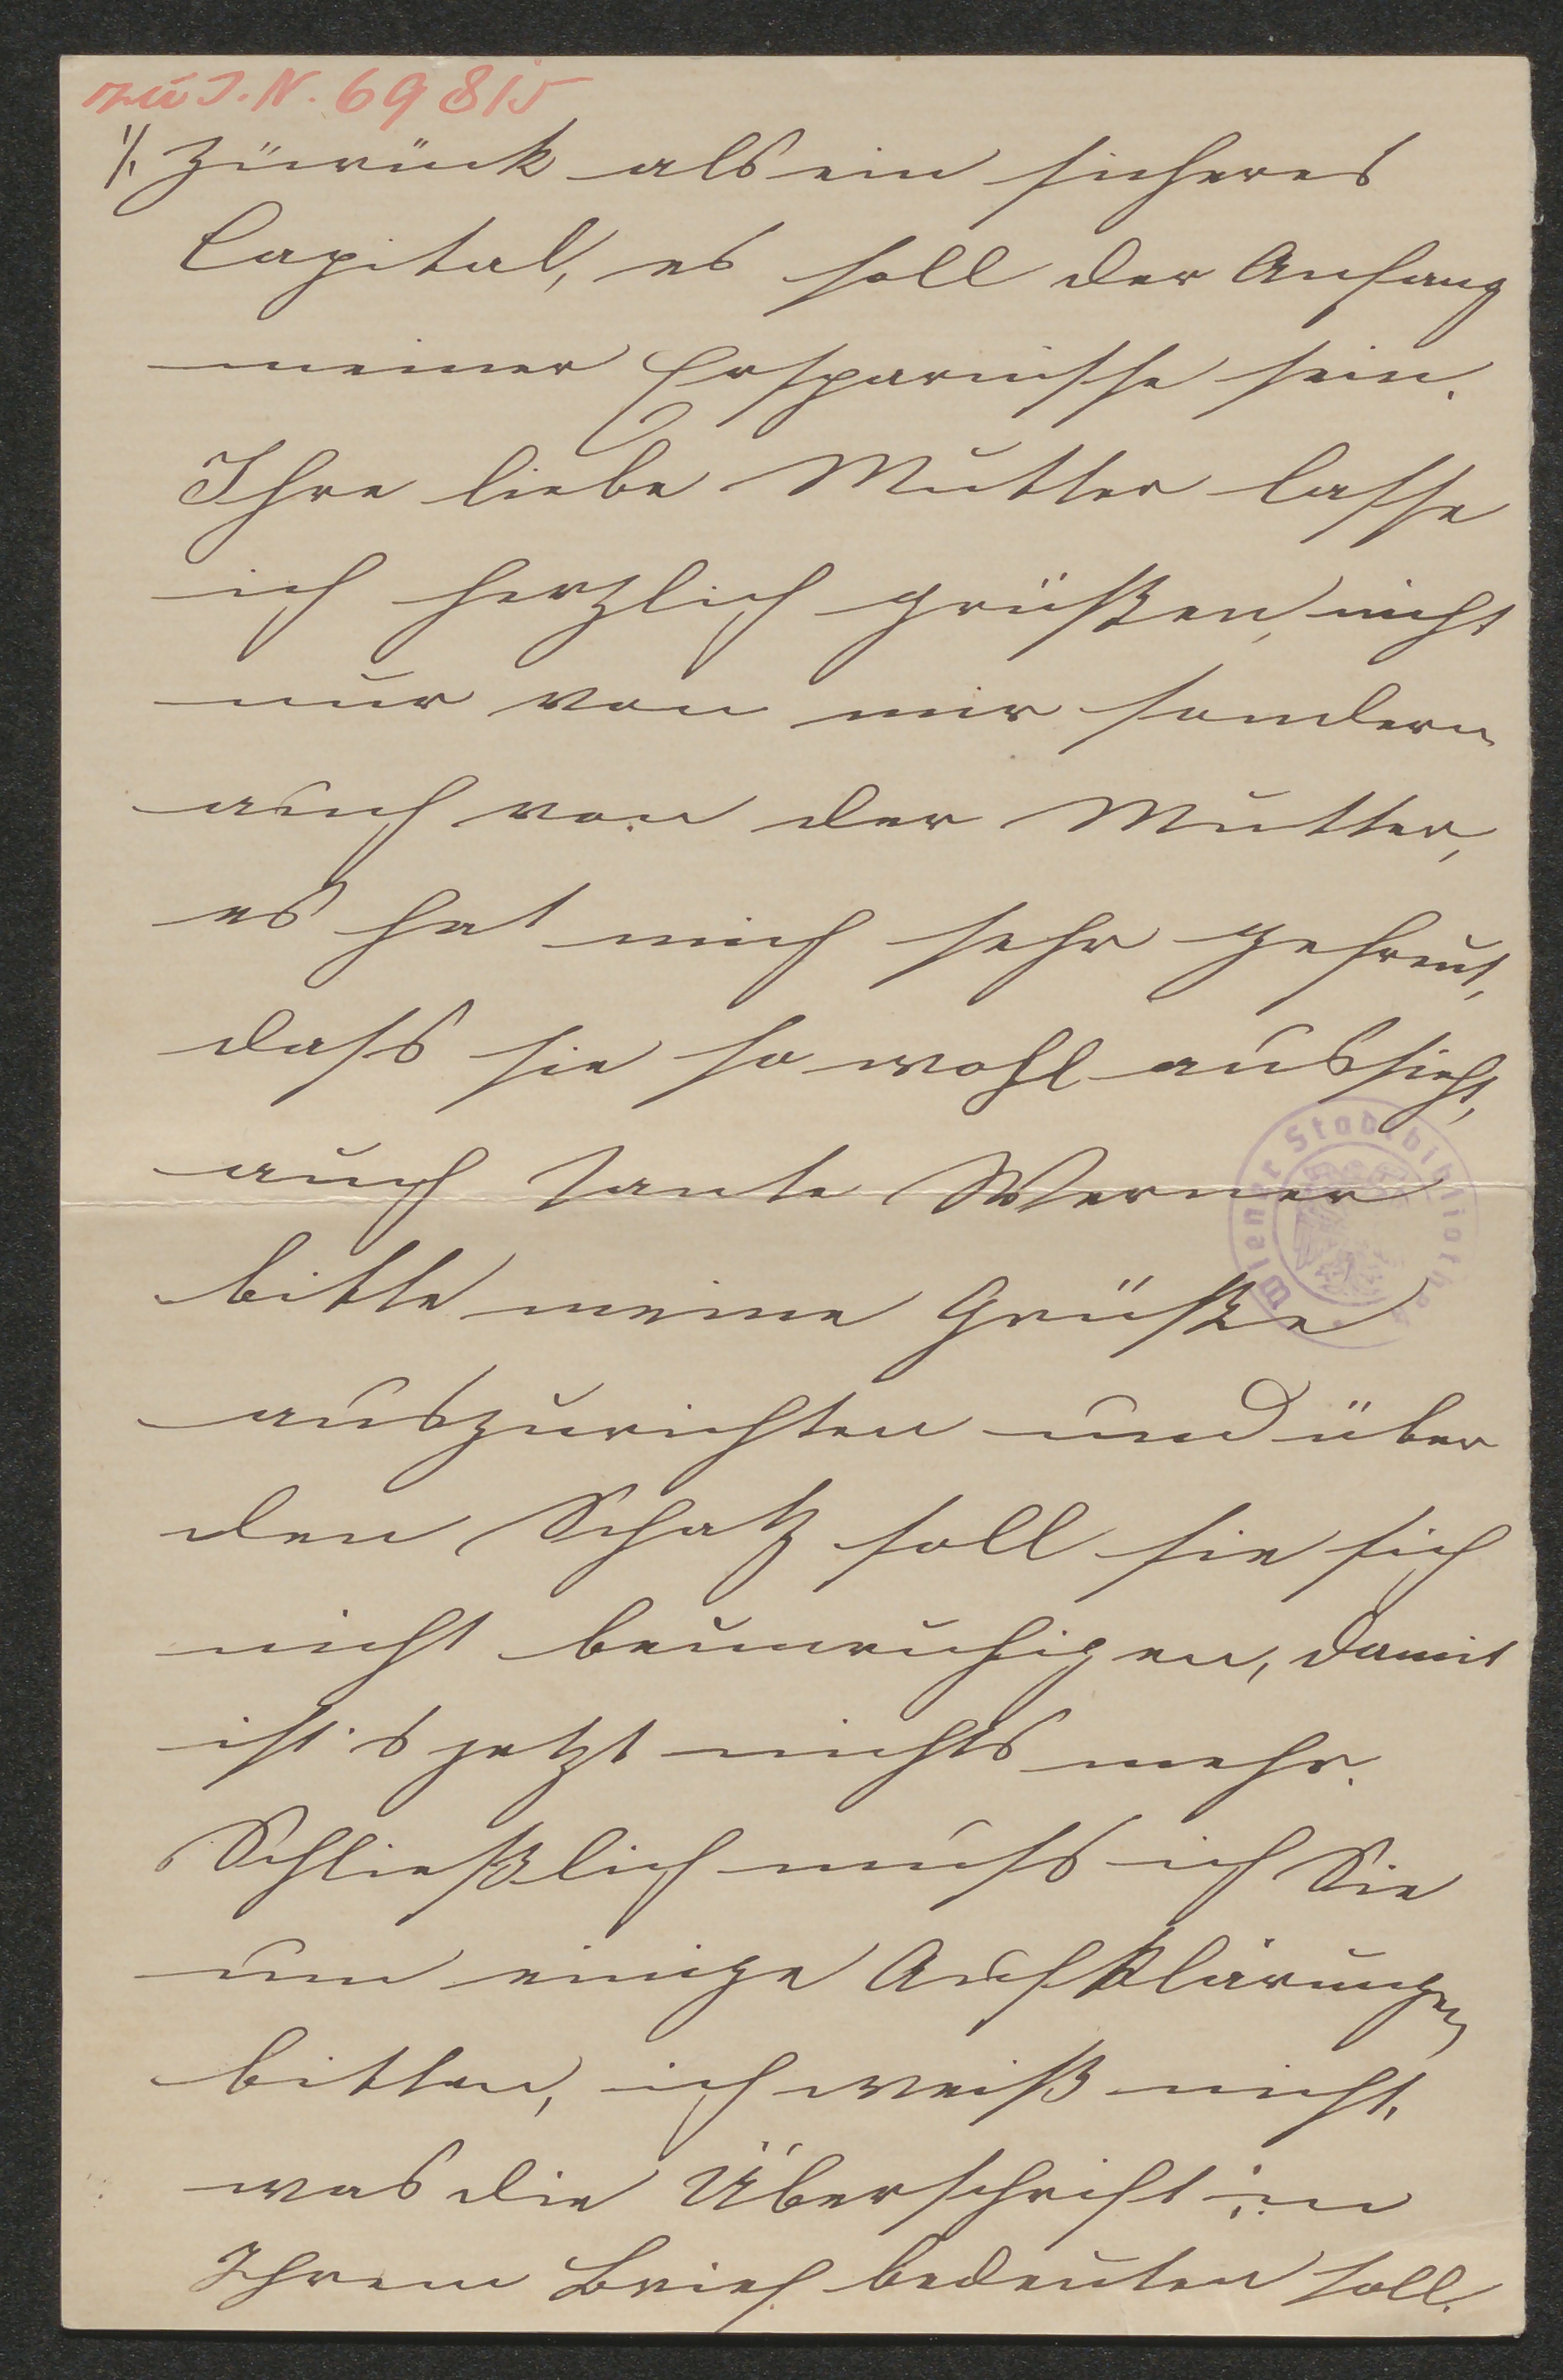 zu J.N. 69815
1/. zurück als ein sicheres
Capital, es soll der Anfang
meiner Ersparnisse sein.
Ihre liebe Mutter lasse
ich herzlich grüßen, nicht
nur von mir sondern
auch von der Mutter,
es hat mich sehr gefreut,
dass sie so wohl aussieht,
auch Tante Werner
bitte meine Grüße
auszurichten und über
den Schatz soll sie sich
nicht beunruhigen, damit
ist's jetzt nichts mehr.
Schließlich muss ich Sie
um einige Aufklärungen
bitten, ich weiß nicht,
was die Überschrift in
Ihrem Brief bedeuten soll.
Wiener Stadtbibliothek